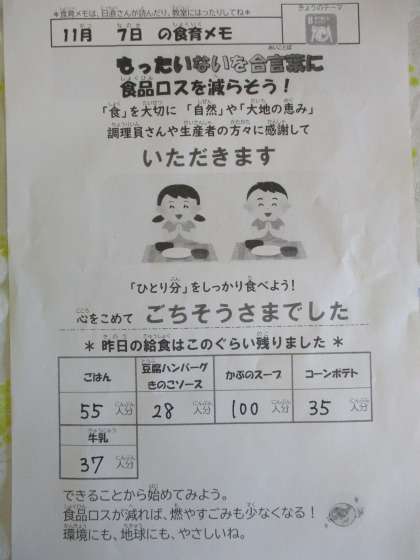 *食育メモは、日直さんが読んだり、教室にはったりしてね*
きょうのテーマ
11月 7日 の食育メモ
もったいないを合言葉に
食品ロスを減らそう!
「食」を大切に 「自然」や「大地の恵み」
調理員さんや生産者の方々に感謝して
いただきます
「ひとり分」をしっかり食べよう!
心をこめて ごちそうさまでした
* 昨日の給食はこのぐらい残りました *
ごはん 豆腐ハンバーグきのこソース かぶのスープ コーンポテト
55人分 28人分 100人分 35人分
牛乳
37人分
できることから始めてみよう。
食品ロスが減れば、燃やすごみも少なくなる!
環境にも、地球にも、やさしいね。